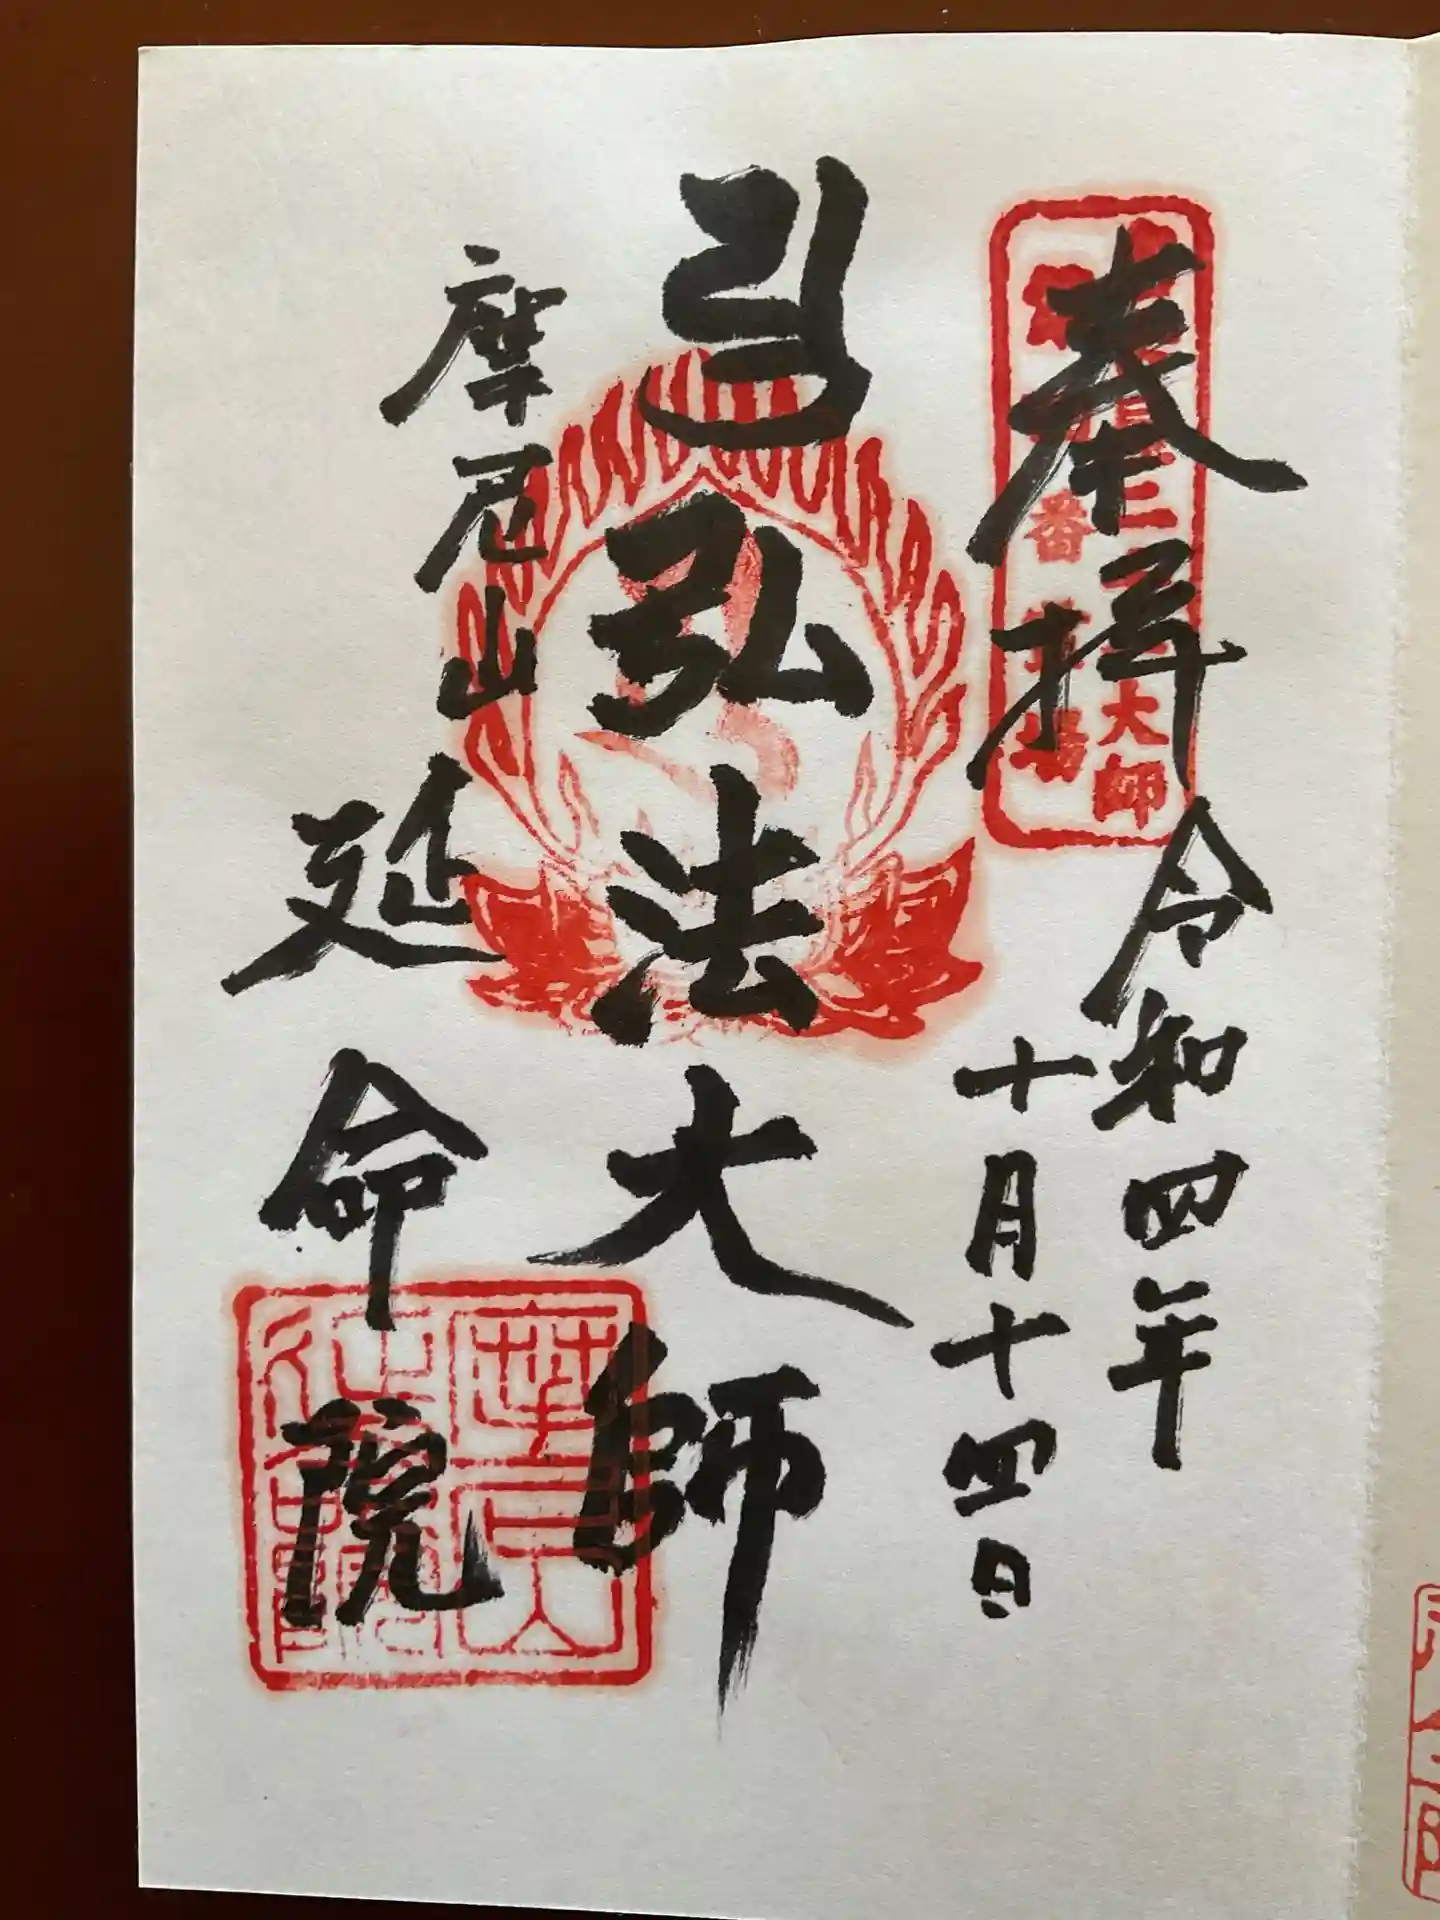 奉拝
令和四年
十月十四日
弘法大師
摩尼山
延命院
大師
番
場
摩尼山
延命院